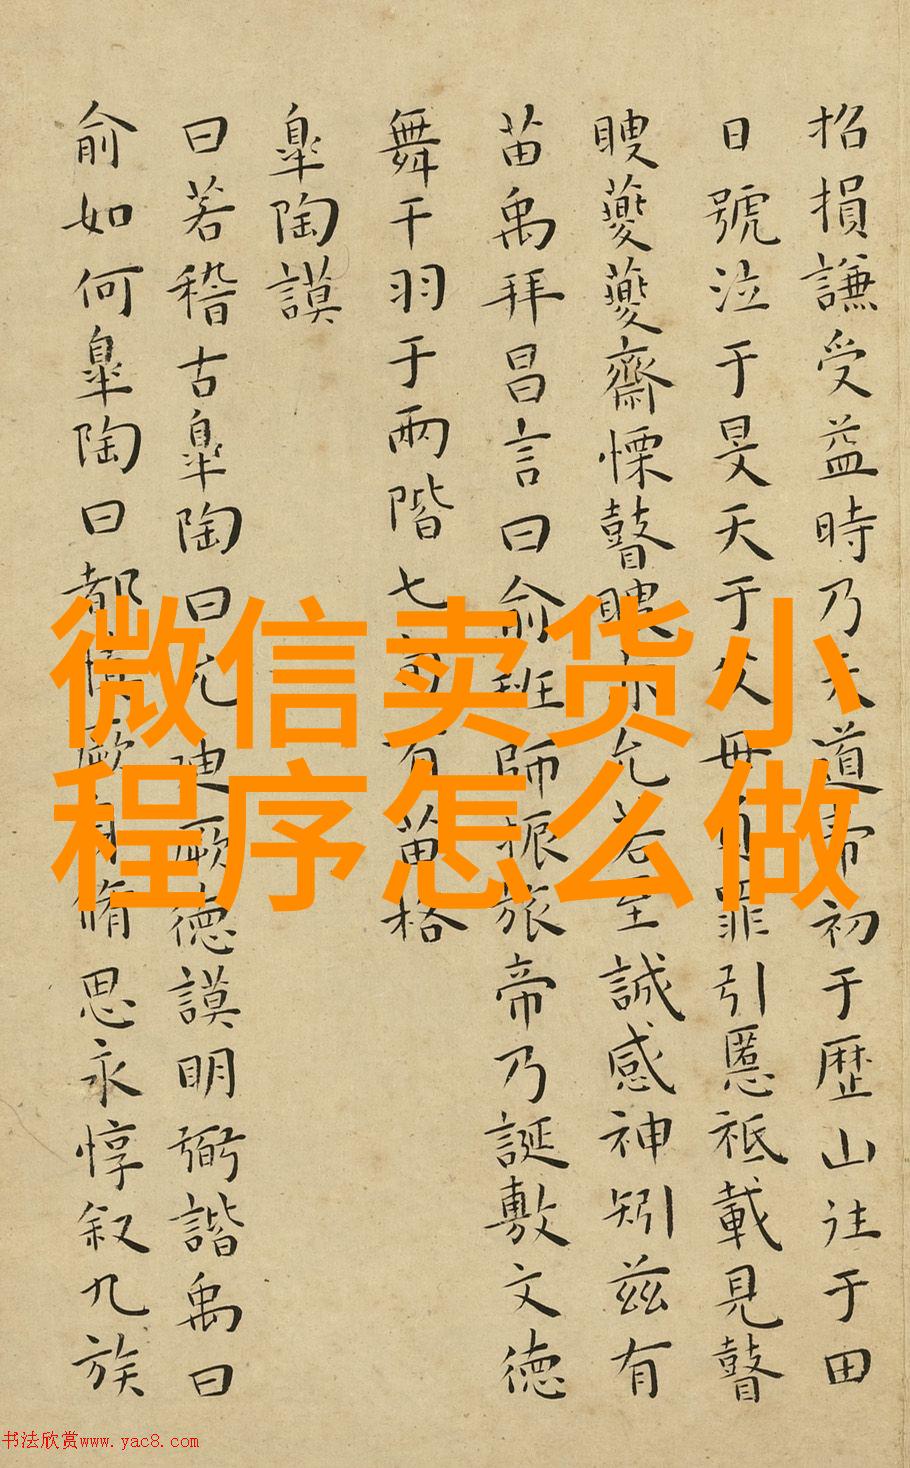 招損謙受益時乃天道帝初于歷山往于田
日號泣于旻天于父母負罪引慝祗載見瞽
瞍夔夔齋慄瞽瞍亦允若至誠感神矧茲有
苗禹拜昌言曰俞班師振旅帝乃誕敷文德
舞干羽于兩階七旬有苗格
皐陶謨
曰若稽古皐陶曰允迪厥德謨明弼諧禹曰
俞如何皐陶曰都慎厥身脩思永惇叙九族
微信卖货小
程序怎么做
书法欣赏www.yac8.com